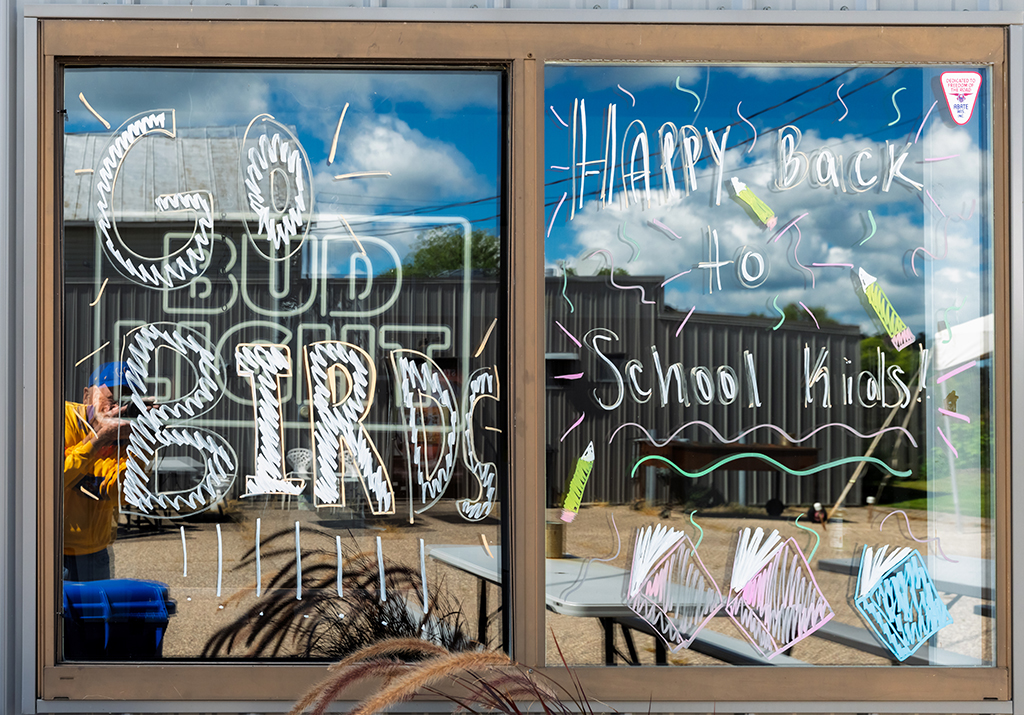 GO
BUD
LIGHT
BIRDS
HAPPY Back
to
School Kids!
DEDICATED TO
FREEDOM OF
THE ROAD
ABATE